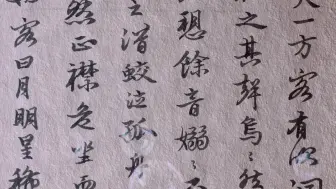 天一方客有吹洞
之其聲烏〻然
愬餘音嫋〻不
之潛蛟泣孤舟
然正襟危坐而
客曰月明星稀